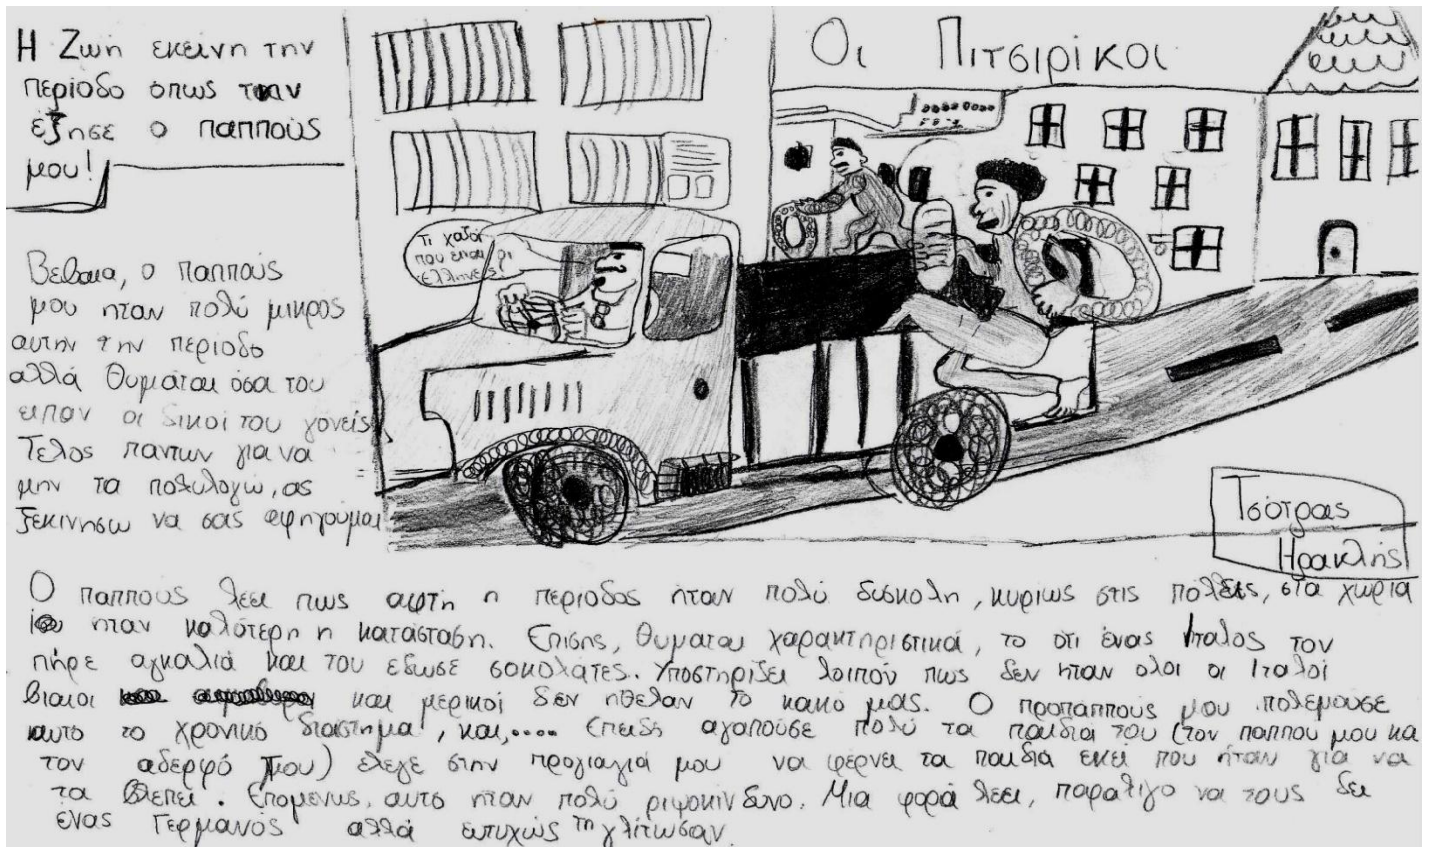 Η Ζωή εκείνη την
περίοδο όπως την
έζησε ο παππούς
μου!
Οι Πιτσιρίκοι
Τι χαζοί
που είναι οι
έλληνες!
Βέβαια, ο παππούς
μου ήταν πολύ μικρός
αυτήν την περίοδο
αλλά θυμάται όσα του
είπαν οι δικοί του γονείς.
Τέλος πάντων για να
μην τα πολυλογώ, ας
ξεκινήσω να σας αφηγούμαι
Τσότρας
Ηρακλής
Ο παππούς λέει πως αφτή η περίοδος ήταν πολύ δύσκολη, κυρίως στις πόλεις, στα χωριά
ήταν καλύτερη η κατάσταση. Επίσης, θυμάται χαρακτηριστικά, το ότι ένας Ιταλός τον
πήρε αγκαλιά και του έδωσε σοκολάτες. Υποστηρίζει λοιπόν πως δεν ήταν όλοι οι Ιταλοί
βίαιοι και μερικοί δεν ήθελαν το κακό μας. Ο προπαππούς μου πολεμούσε
αυτό το χρονικό διάστημα, και,.... Επειδή αγαπούσε πολύ τα παιδιά του (τον παππού μου κα
τον αδερφό του) έλεγε στην προγιαγιά μου να φέρνει τα παιδιά εκεί που ήταν για να
τα βλέπει. Επομένως, αυτό ήταν πολύ ριψοκίνδυνο. Μια φορά λέει, παραλίγο να τους δει
ένας Γερμανός αλλά ευτυχώς τη γλίτωσαν.